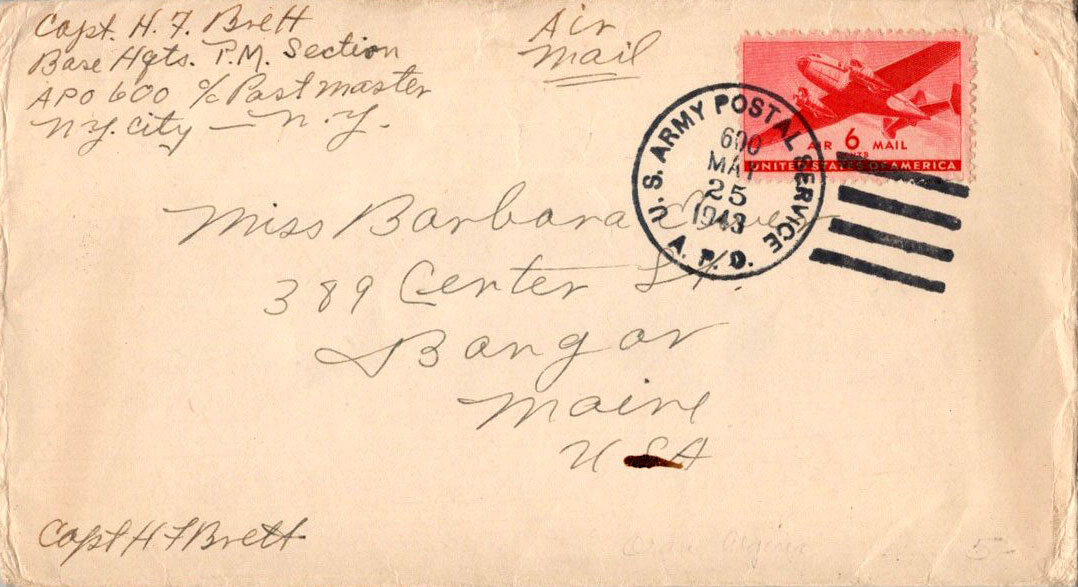 Capt. H. F. Brett
Base Hqts. P.M. Section
APO 600 c/o Postmaster
N.Y. City — N.Y.
Air
Mail
AIR 6 MAIL
CENTS
UNITED STATES OF AMERICA
U. S. ARMY POSTAL SERVICE
600
MAY
25
1943
A. P. O.
Miss Barbara
389 Center St.
Bangor
Maine
USA
Capt H F Brett
Oran Algeria
5-